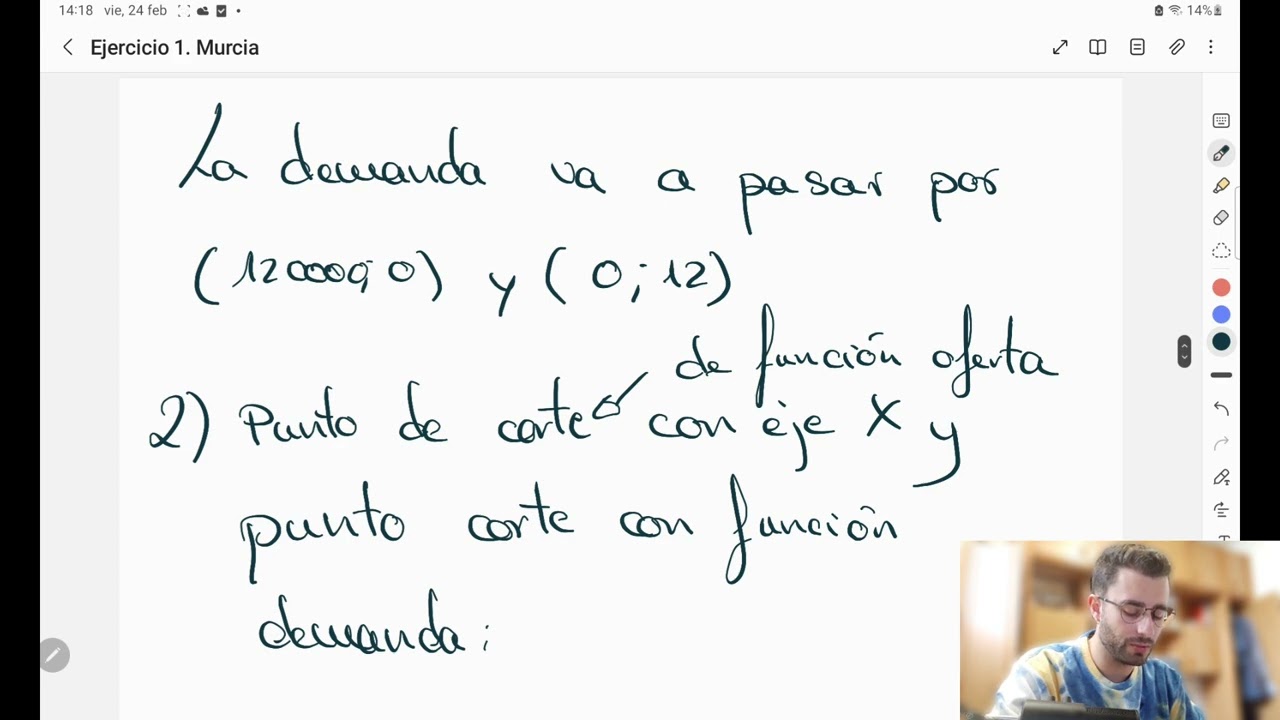 14:18 vie, 24 feb
14%
Ejercicio 1. Murcia
La demanda va a pasar por
(12000; 0) y (0; 12)
de función oferta
2) Punto de corte con eje X y
punto corte con función
demanda: